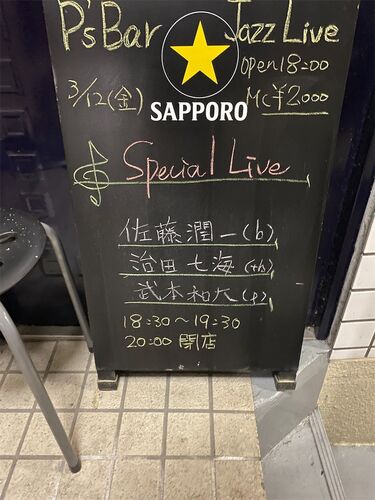 P's Bar Jazz Live
Open 18:00
3/12(金) MC¥2,000
SAPPORO
Special Live
佐藤潤一(b)
治田七海(tb)
武本和大(p)
18:30～19:30
20:00 閉店